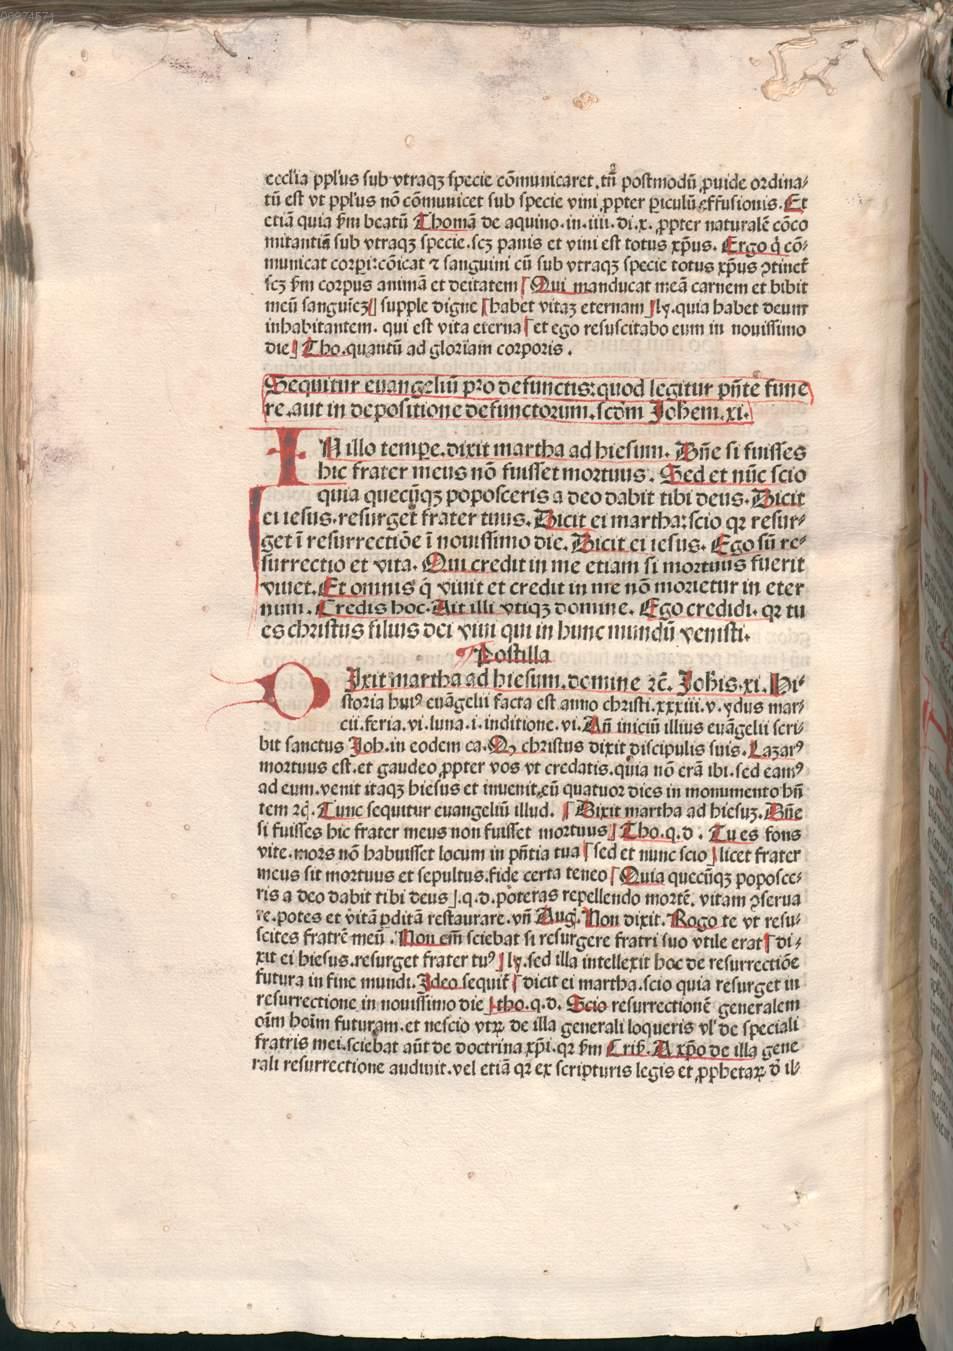 eccl'ia ppl'us sub vtraqȝ specie cōmunicaret. tn̄ postmodū ꝓuide ordina⸗
tū est vt ppl'us nō cōmunicet sub specie vini ꝓpter ꝑiculū effusionis. Et
etiā quia ẜm beatū Thomā de aquino. in. iiii. di. x. ꝓpter naturalē cōco
mitantiā sub vtraqȝ specie. scȝ panis et vini est totus xp̄us. Ergo q̇ cō⸗
municat corpi: cōicat ⁊ sanguini cū sub vtraqȝ specie totus xp̄us ꝯtinet̄
scȝ ẜm corpus animā et deitatem Qui manducat meā carnem et bibit
meū sanguiez supple digne habet vitaȝ eternam ly. quia habet deum
inhabitantem. qui est vita eterna et ego resuscitabo eum in nouissimo
die Tho. quantū ad gloriam corporis.
Sequitur euangeliū pro defunctis: quod legitur pn̄te fune
re. aut in depositione defunctorum. scd̄m Johem. xi.
IN illo tempe. dixit martha ad hiesum. Dn̄e si fuisses
hic frater meus nō fuisset mortuus. Sed et nūc scio
quia quecūqȝ poposceris a deo dabit tibi deus. Dicit
ei iesus. resurget frater tuus. Dicit ei martha: scio qꝛ resur⸗
get ī resurrectiōe ī nouissimo die. Dicit ei iesus. Ego sū re⸗
surrectio et vita. Qui credit in me etiam si mortuus fuerit
viuet. Et omnis q̇ viuit et credit in me nō morietur in eter
num. Credis hoc. Ait illi vtiqȝ domine. Ego credidi. qꝛ tu
es christus filius dei viui qui in hunc mundū venisti.
Postilla
DIxit martha ad hiesum. domine ⁊c̄. Joh̄is. xi. Hi⸗
storia huiꝰ euāgelii facta est anno christi. xxxiii. v. ydus mar⸗
cii. feria. vi. luna. i. inditione. vi. An̄ iniciū illius euāgelii scri⸗
bit sanctus Joh. in eodem ca. Qȝ christus dixit discipulis suis. Lazarꝰ
mortuus est. et gaudeo ꝓpter vos vt credatis. quia nō erā ibi. sed eamꝰ
ad eum. venit itaqȝ hiesus et inuenit eū quatuor dies in monumento hn̄
tem ⁊c̄. Tunc sequitur euangeliū illud. Dixit martha ad hiesuȝ. Dn̄e
si fuisses hic frater meus non fuisset mortuus Tho. q. d. Tu es fons
vite. mors nō habuisset locum in pn̄tia tua sed et nunc scio licet frater
meus sit mortuus et sepultus. fide certa teneo Quia quecūqȝ poposce⸗
ris a deo dabit tibi deus .q. d. poteras repellendo mortē. vitam ꝯserua
re. potes et vitā ꝑditā restaurare. vn̄ Aug. Non dixit. Rogo te vt resu⸗
scites fratrē meū. Non em̄ sciebat si resurgere fratri suo vtile erat di⸗
xit ei hiesus. resurget frater tuꝰ ly. sed illa intellexit hoc de resurrectiōe
futura in fine mundi. Ideo sequit̄ dicit ei martha. scio quia resurget in
resurrectione in nouissimo die tho. q. d. Scio resurrectionē generalem
oīm hoīm futuram. et nescio vtꝝ de illa generali loqueris vl' de speciali
fratris mei. sciebat aūt de doctrina xp̄i. qꝛ ẜm Crih̄. A xp̄o de illa gene
rali resurrectione audiuit. vel etiā qꝛ ex scripturis legis et ꝓphetaꝝ d̄ il⸗